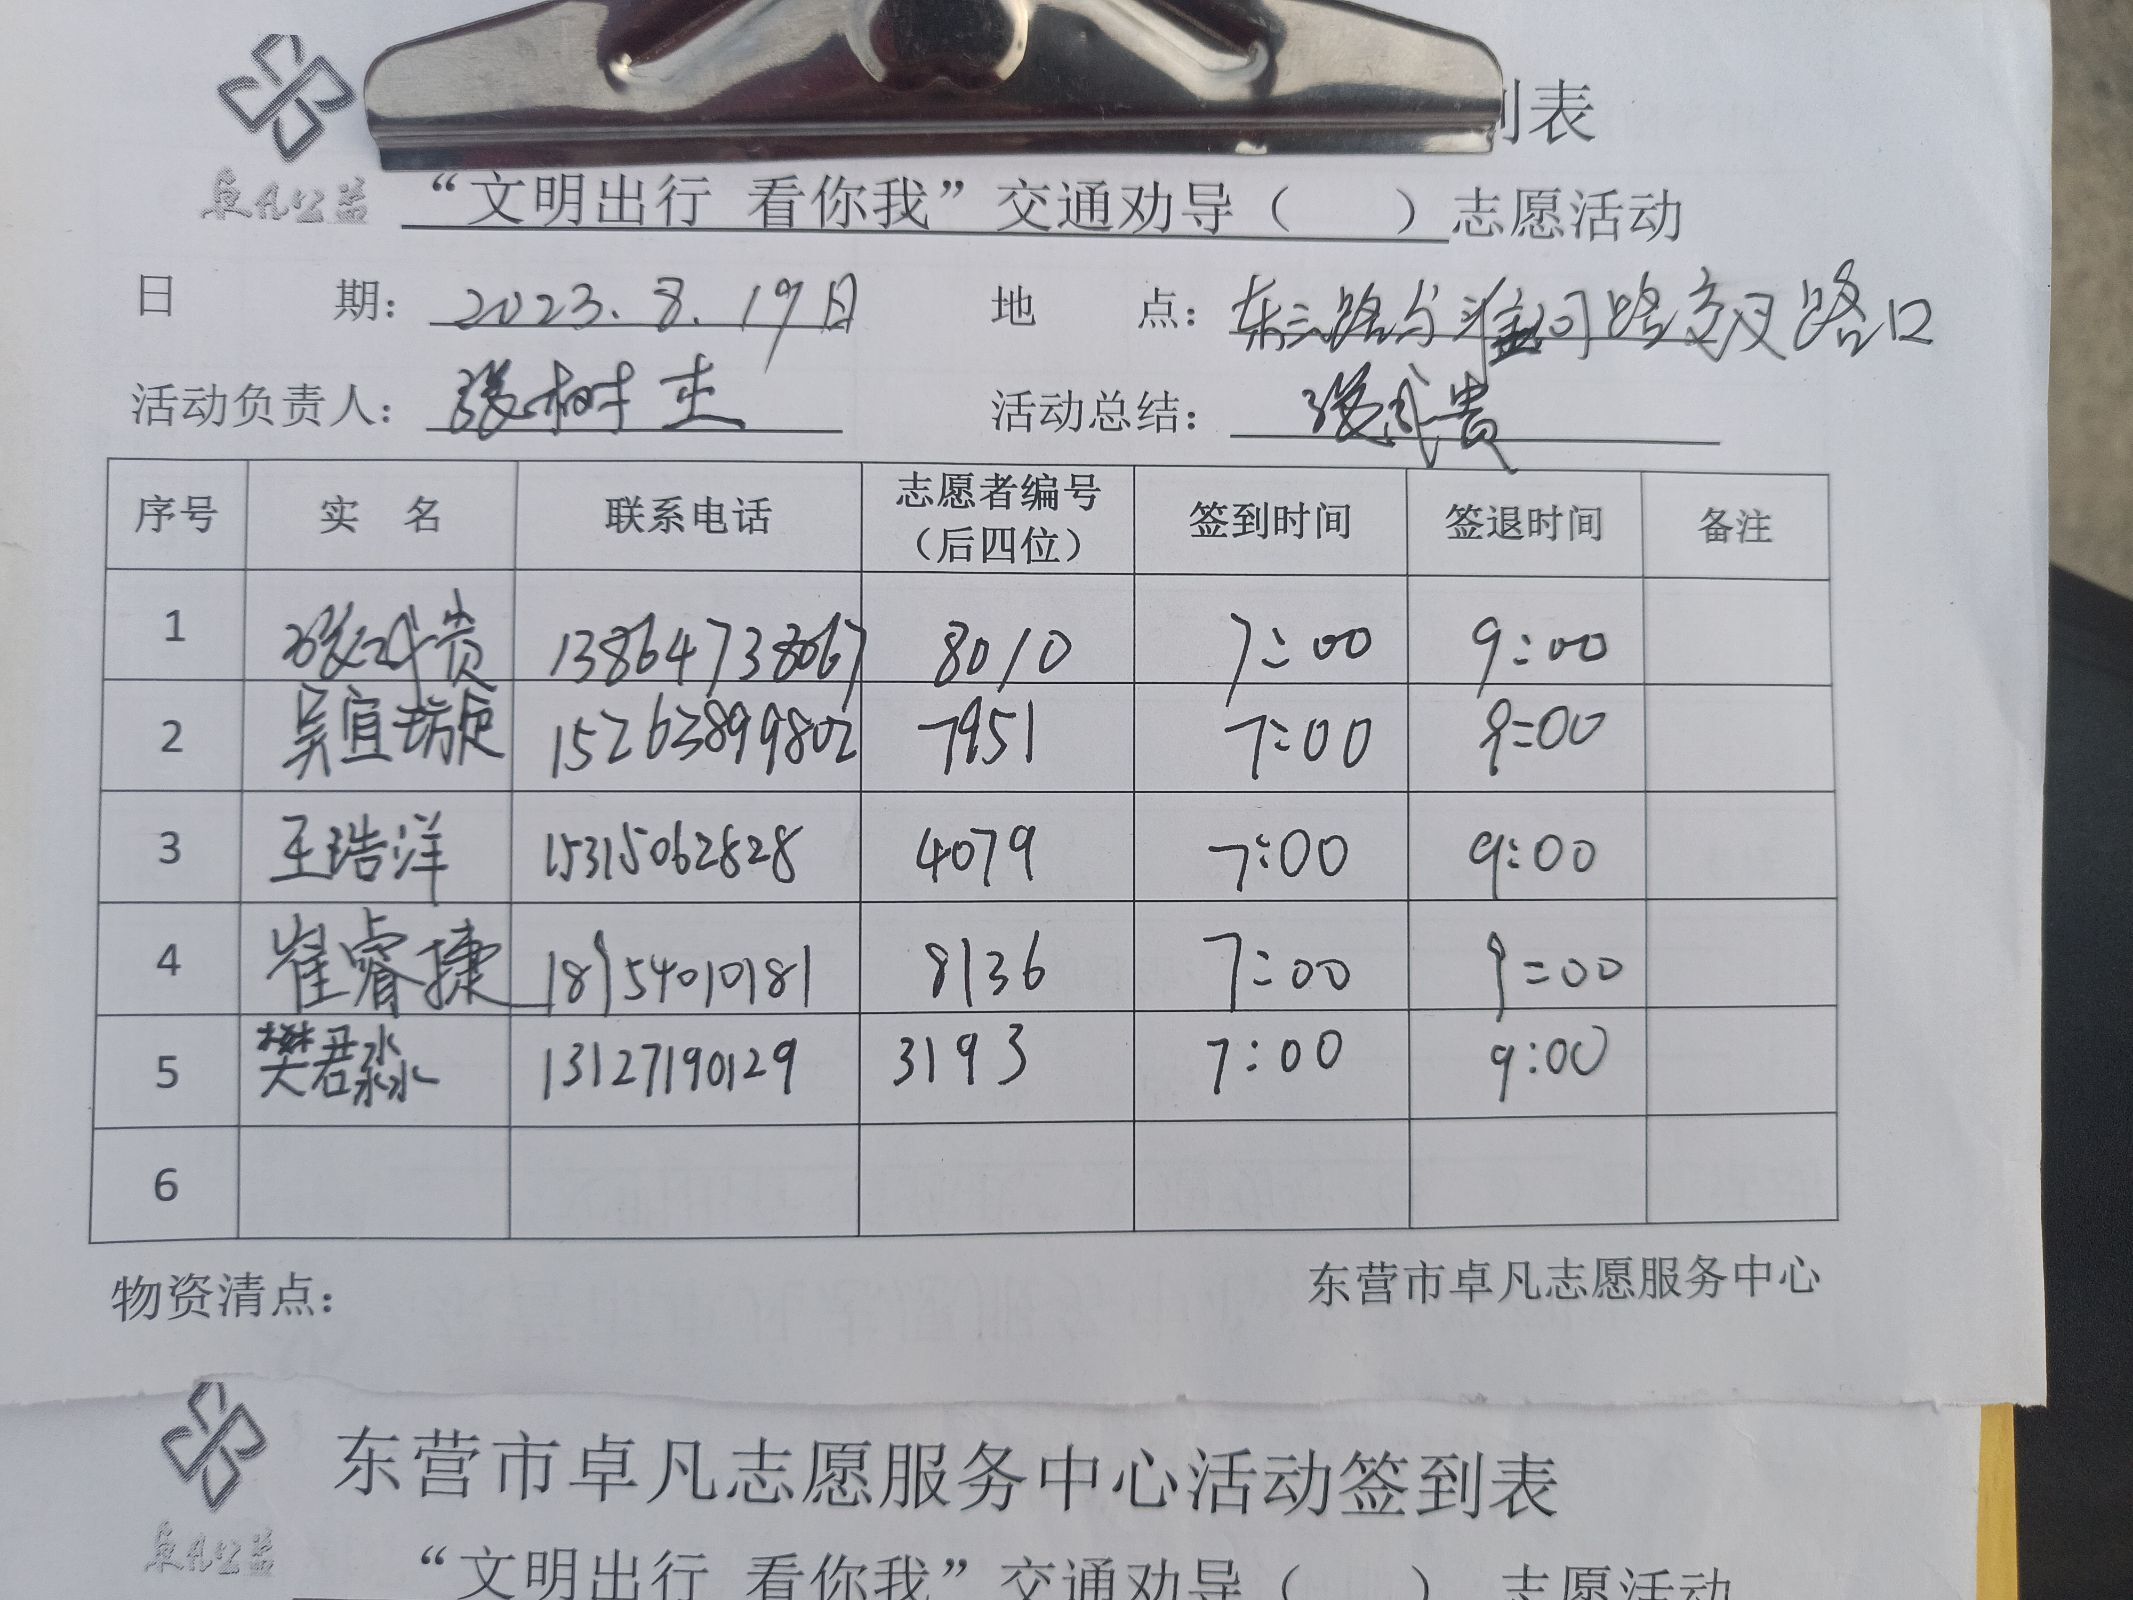 到表
卓凡公益
“文明出行 看你我”交通劝导（ ）志愿活动
日 期： 2023.8.19日 地 点： 东三路与淮河路交叉路口
活动负责人： 张树 活动总结： 张武贵
序号 实 名 联系电话 志愿者编号（后四位） 签到时间 签退时间 备注
1 张武贵 13864738067 8010 7:00 9:00
2 吴宜璇 15263899802 7951 7:00 9:00
3 王珺洋 15315062828 4079 7:00 9:00
4 崔睿捷 18154010181 8136 7:00 9:00
5 樊君淼 13127190129 3193 7:00 9:00
6
物资清点： 东营市卓凡志愿服务中心
东营市卓凡志愿服务中心活动签到表
卓凡公益
“文明出行 看你我”交通劝导（ ） 志愿活动